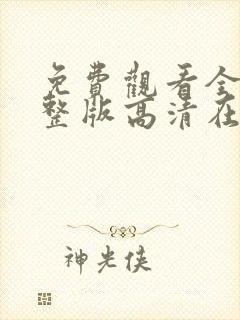 免費觀看全
整版高清在
神光俠